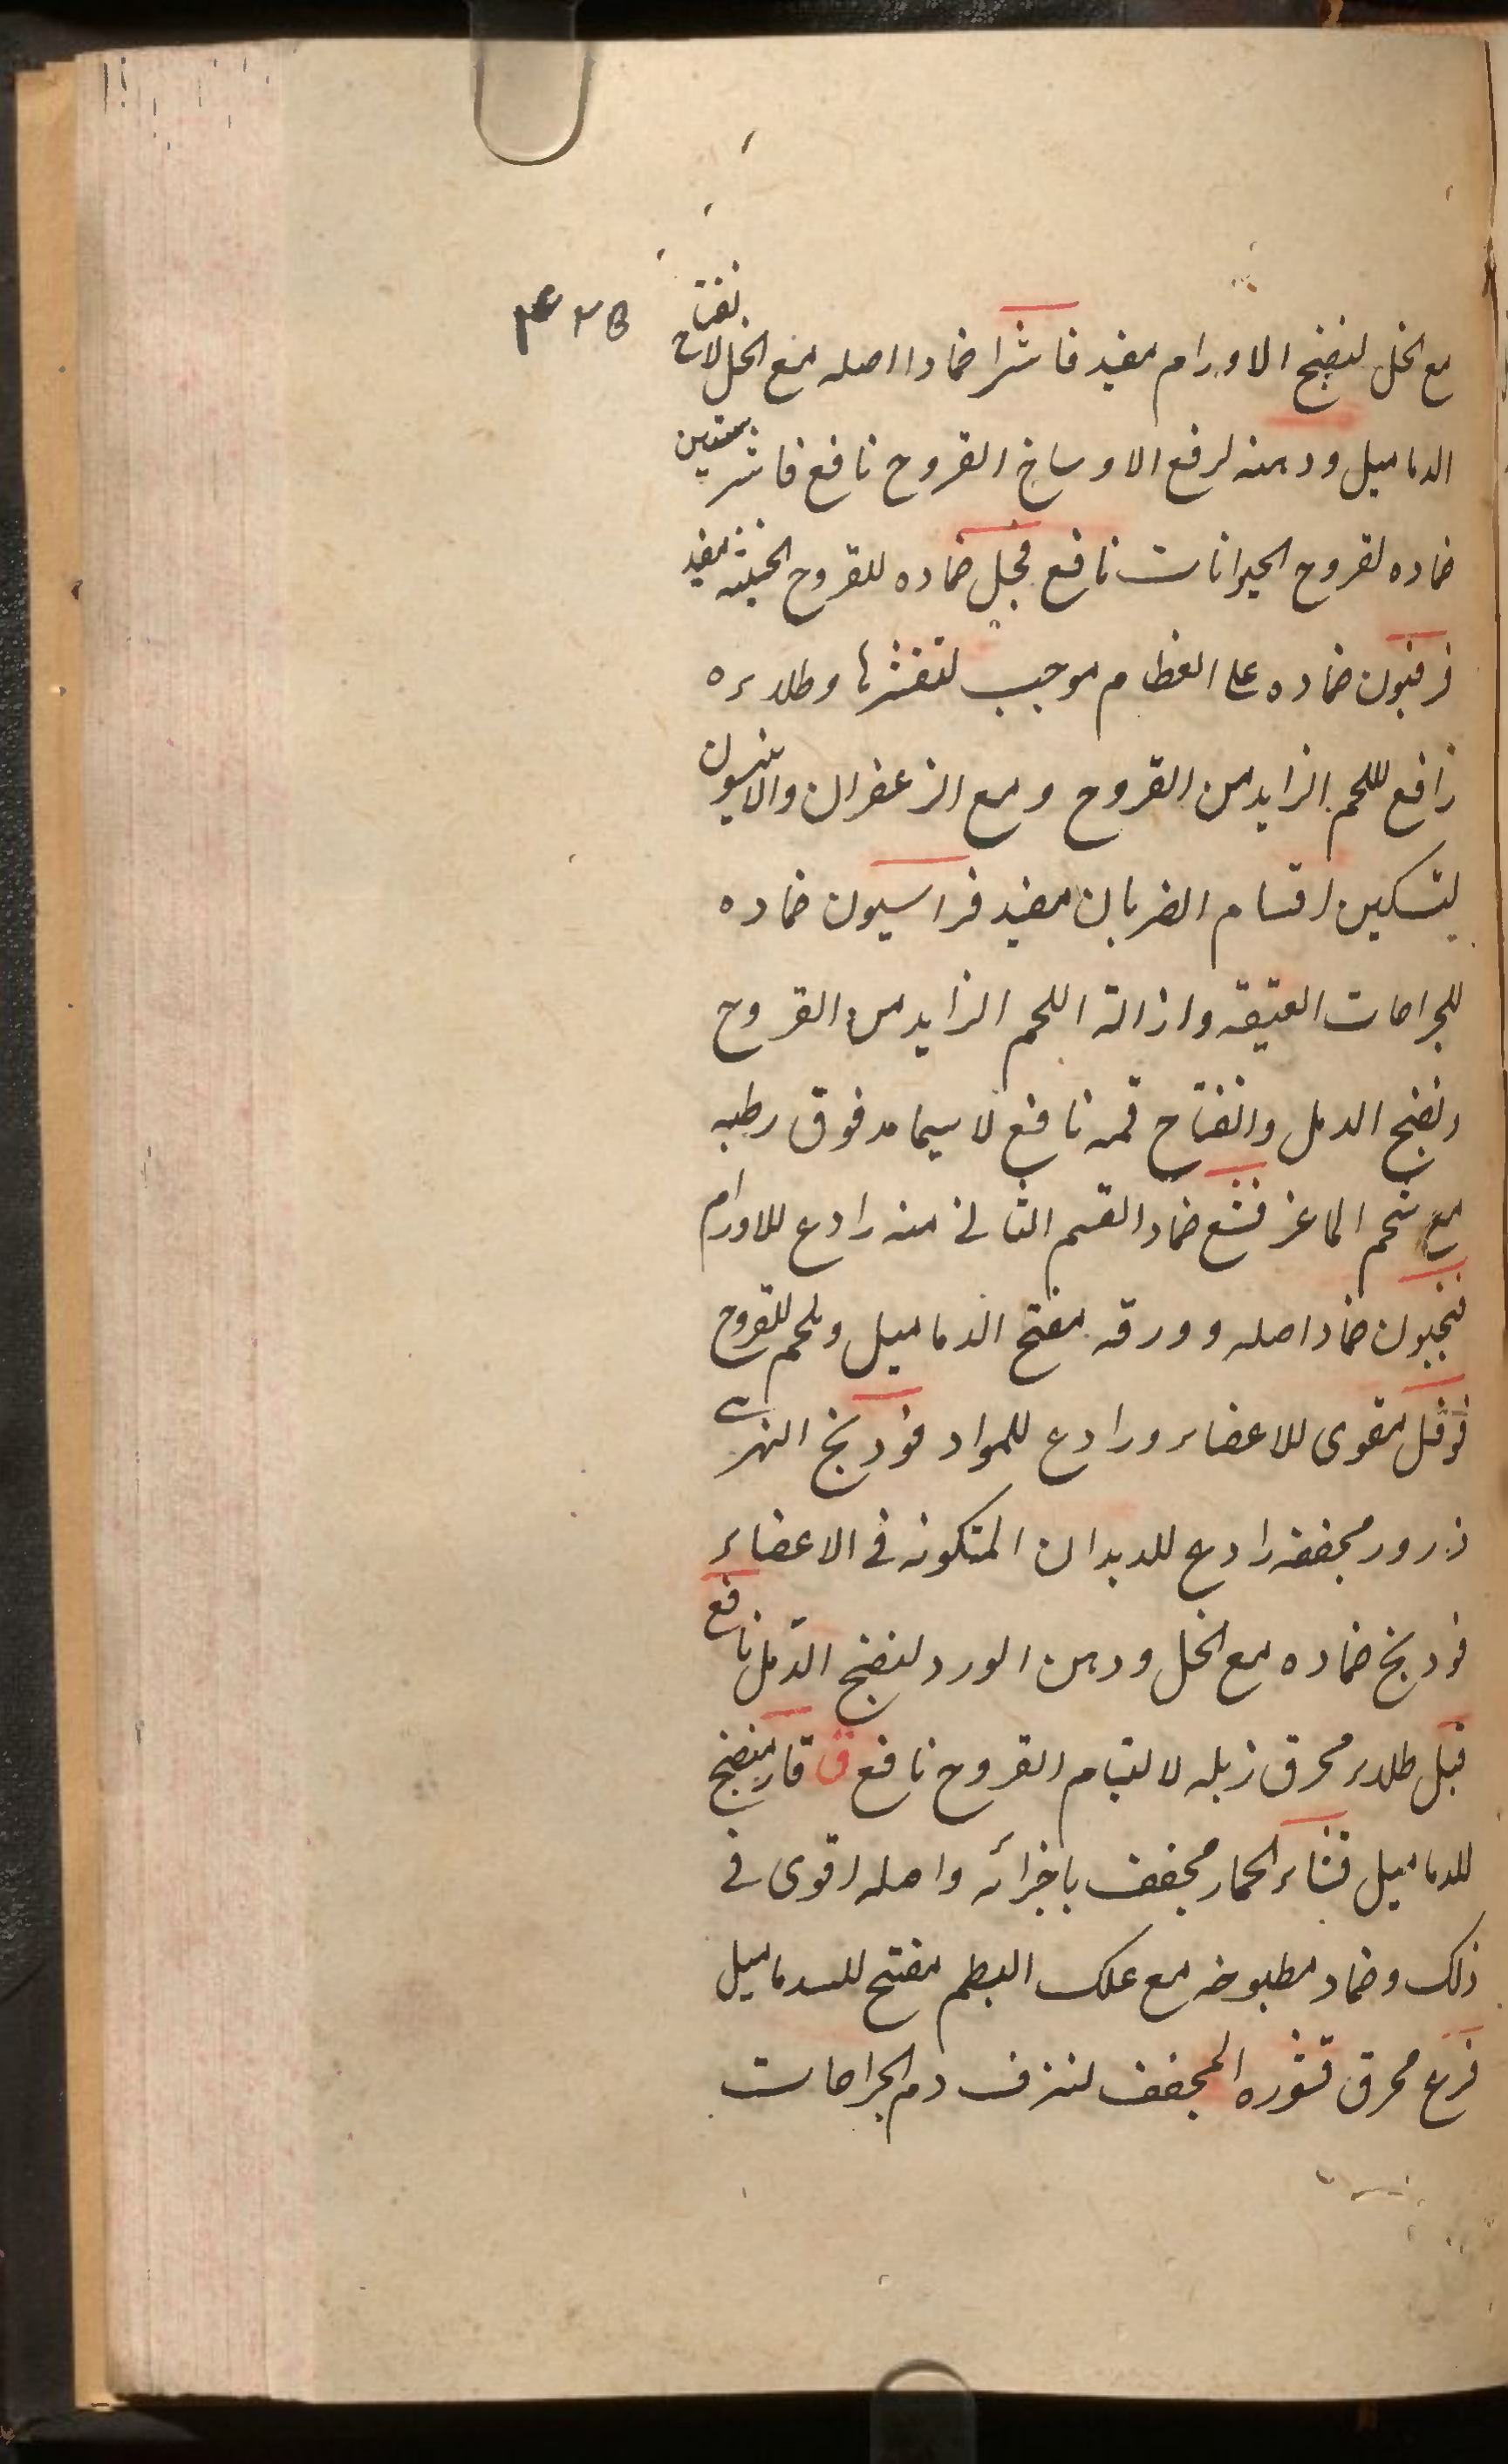 ۴۲۵
مع الخل لنضج الاورام مفید فاشرا ضمادا اصله مع الخل لانفتاح
الدمامیل ودهنه لرفع الاوساخ القروح نافع فاشرستین
ضماده لقروح الحیوانات نافع فجل ضماده للقروح الخبیثه مفید
فرفیون ضماده علی العظام موجب لتقشرها وطلاءه
رافع للحم الزاید من القروح ومع الزعفران والافیون
لتسکین اقسام الضربان مفید فراسیون ضماده
للجراحات العتیقه وازالة اللحم الزاید من القروح
ونضج الدمل وانفتاح فمه نافع لاسیما مدقوق رطبه
مع شحم الماعز فشغ ضماد القسم الثانی منه رادع للاورام
ضماد اصله وورقه مفتح الدمامیل وملحم للقروح
فوفل مقوی للاعضاء ورادع للمواد فودنج النهری
ذرور مجففه رادع للدیدان المتکونه فی الاعضاء
فودنج ضماده مع الخل ودهن الورد لنضج الدمل نافع
فیل طلاء محرق زبله لالتیام القروح نافع ق قار منضج
للدمامیل قثاء الحمار مجفف باجزائه واصله اقوی فی
ذلک وضماد مطبوخه مع علک البطم مفتح للدمامیل
قرع محرق قشوره المجفف لنزف دم الجراحات